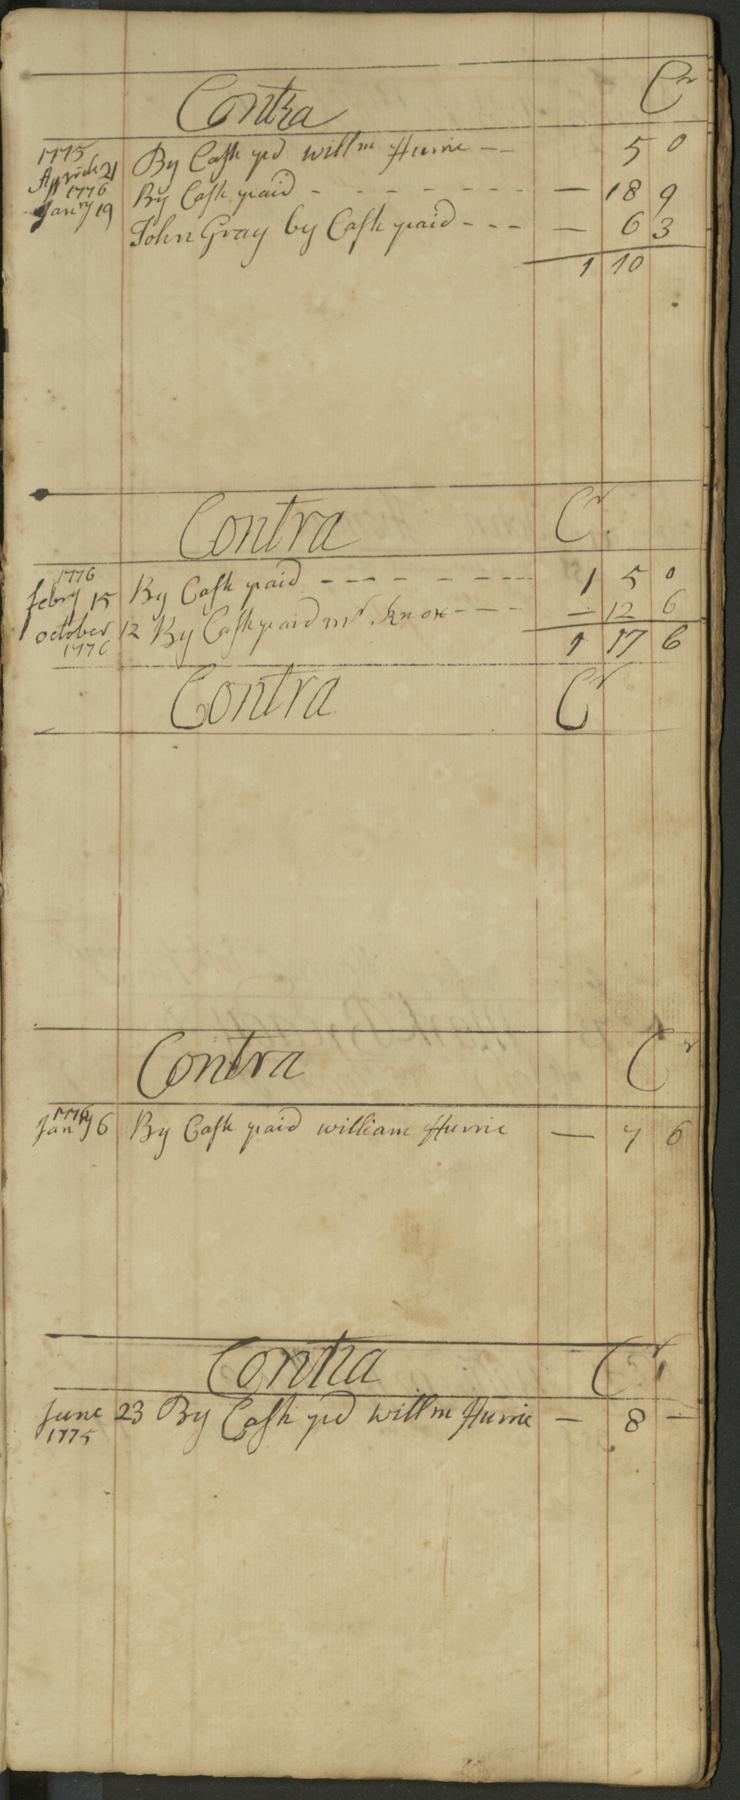 Contra Cr
1775
Aprile 21 By Cash pd willm Hurrie -- 5 0
1776
Janry 19 By Cash paid - - - - - - - — 18 9
John Gray by Cash paid - - - — 6 3
1 10
Contra Cr
1776
febry 15 By Cash paid --- - - --- 1 5 0
october 12 By Cash paid mr Knox --- — 12 6
1776 1 17 6
Contra Cr
Contra Cr
1776
Janry 6 By Cash paid william Hurrie — 7 6
Contra Cr
June 23 By Cash pd willm Hurrie — 8 —
1775